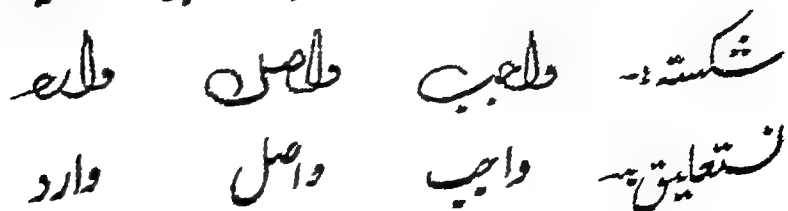 شکستہ:- واجب واصل وارد
نستعلیق:- واجب واصل وارد